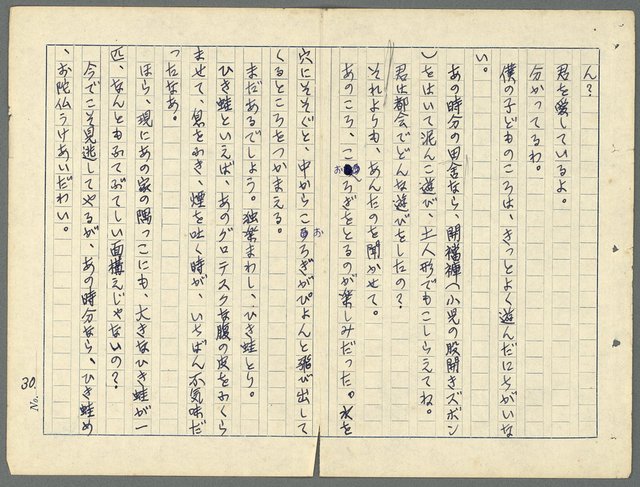 ん？
君を愛しているよ。
分かってるわ。
僕の子どものころは、きっとよく遊んだにちがいな
い。
あの時分の田舎なら、開襠褲へ小児の股開きズボン
）をはいて泥んこ遊び、土人形でもこしらえてね。
君は都会でどんな遊びをしたの？
それよりも、あんたのを聞かせて。
あのころ、こおろぎをとるのが楽しみだった。水を
穴にそそぐと、中からこおろぎがぴょんと飛び出して
くるところをつかまえる。
まだあるでしょう。独楽まわし、ひき蛙とり。
ひき蛙といえば、あのグロテスクな腹の皮をふくら
ませて、息をふき、煙を吐く時が、いちばん不気味だ
ったなあ。
ほら、現にあの家の隅っこにも、大きなひき蛙が一
匹、なんともふてぶてしい面構えじゃないの？
今でこそ見逃してやるが、あの時分なら、ひき蛙め
、お陀仏うけあいだわい。
No. 30